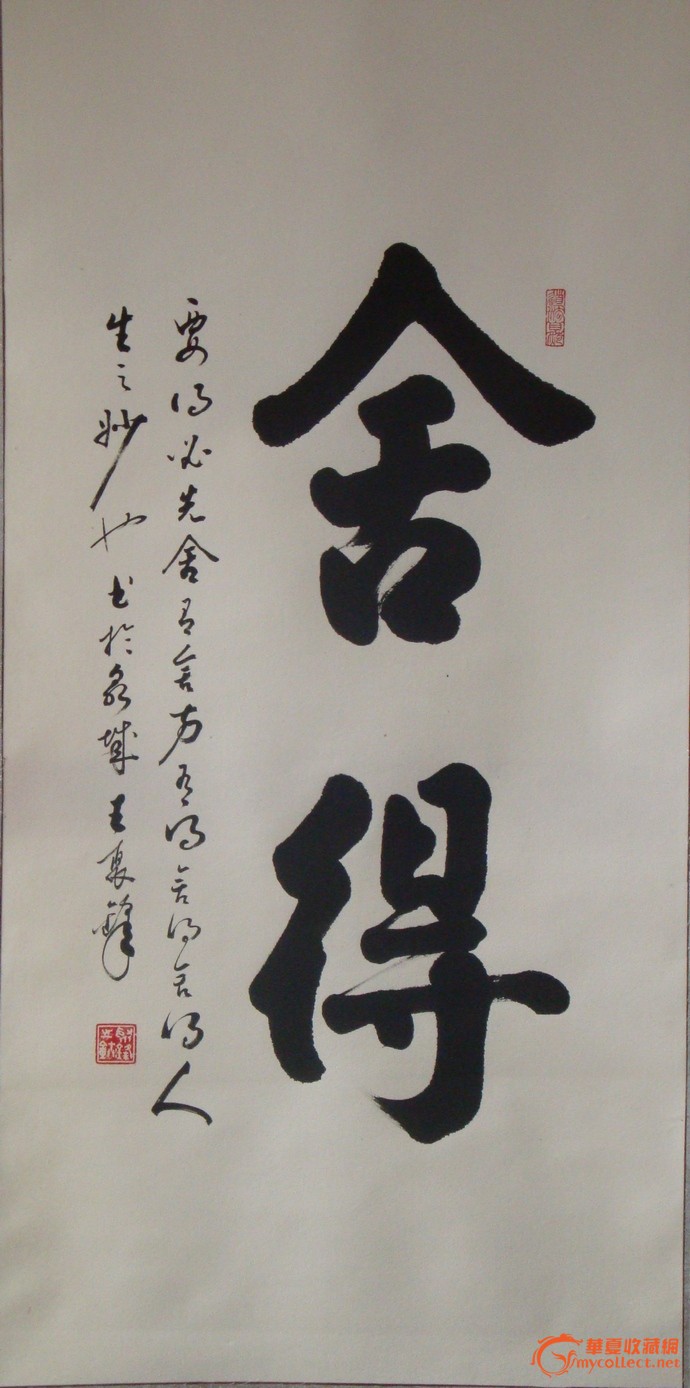 舍得
要得必先舍有舍方有得舍得舍得人
生之妙也书於泉城王夏锋
華夏收藏網
mycollect.net